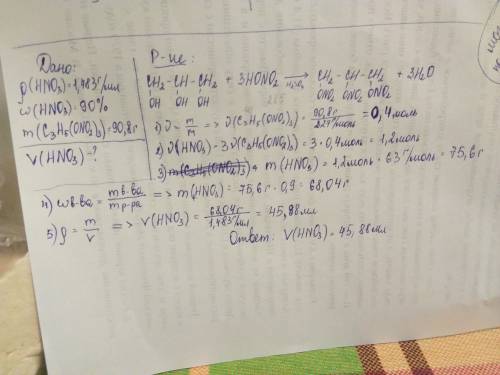 Дано:
ρ(HNO3)=1,483г/мл
ω(HNO3)-90%
m(C3H5(ONO2)3)=90,8г
V(HNO3)=?
Р-ие:
CH2-CH-CH2 + 3HONO2 →H2SO4 CH2-CH-CH2 + 3H2O
OH OH OH ONO2 ONO2 ONO2
1) ν=m/M => ν(C3H5(ONO2)3)=90,8г/227г/моль=0,4моль
2) ν(HNO3)=3ν(C3H5(ONO2)3)=3·0,4моль=1,2моль
3) m(C3H5(ONO2)3)= m(HNO3)=1,2моль·63г/моль=75,6г
4) ωв-ва=mв-ва/mр-ра => m(HNO3)=75,6г·0,9=68,04г
5) ρ=m/V => V(HNO3)=68,04г/1,483г/мл=45,88мл
Ответ: V(HNO3)=45,88мл